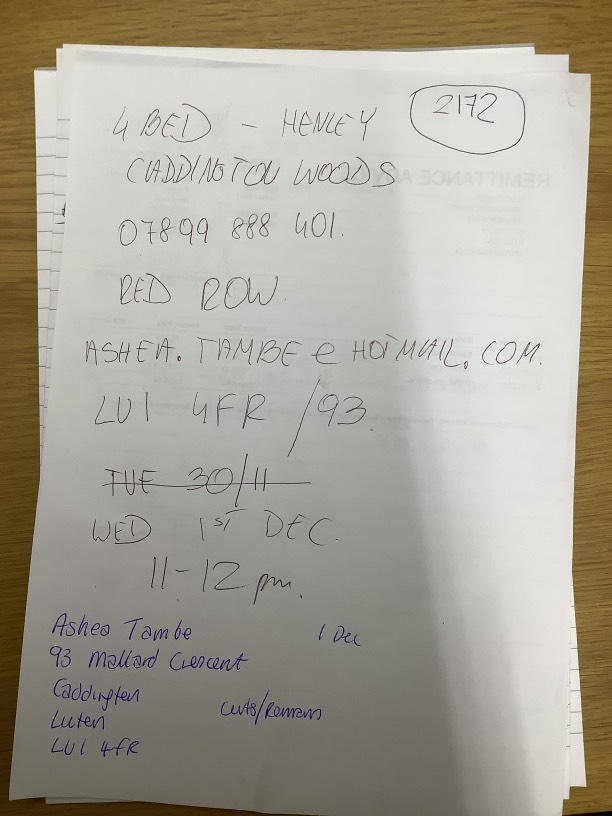 2172
4 BED - HENLEY
CADDINGTON WOODS
07899 888 401.
RED ROW
ASHEA. TAMBE @ HOTMAIL. COM.
LU1 4FR /93
TUE 30/11
WED 1ST DEC.
11-12 pm.
Ashea Tambe 1 Dec
93 Mallard Crescent
Caddington
Luton
LU1 4FR
REMITTANCE